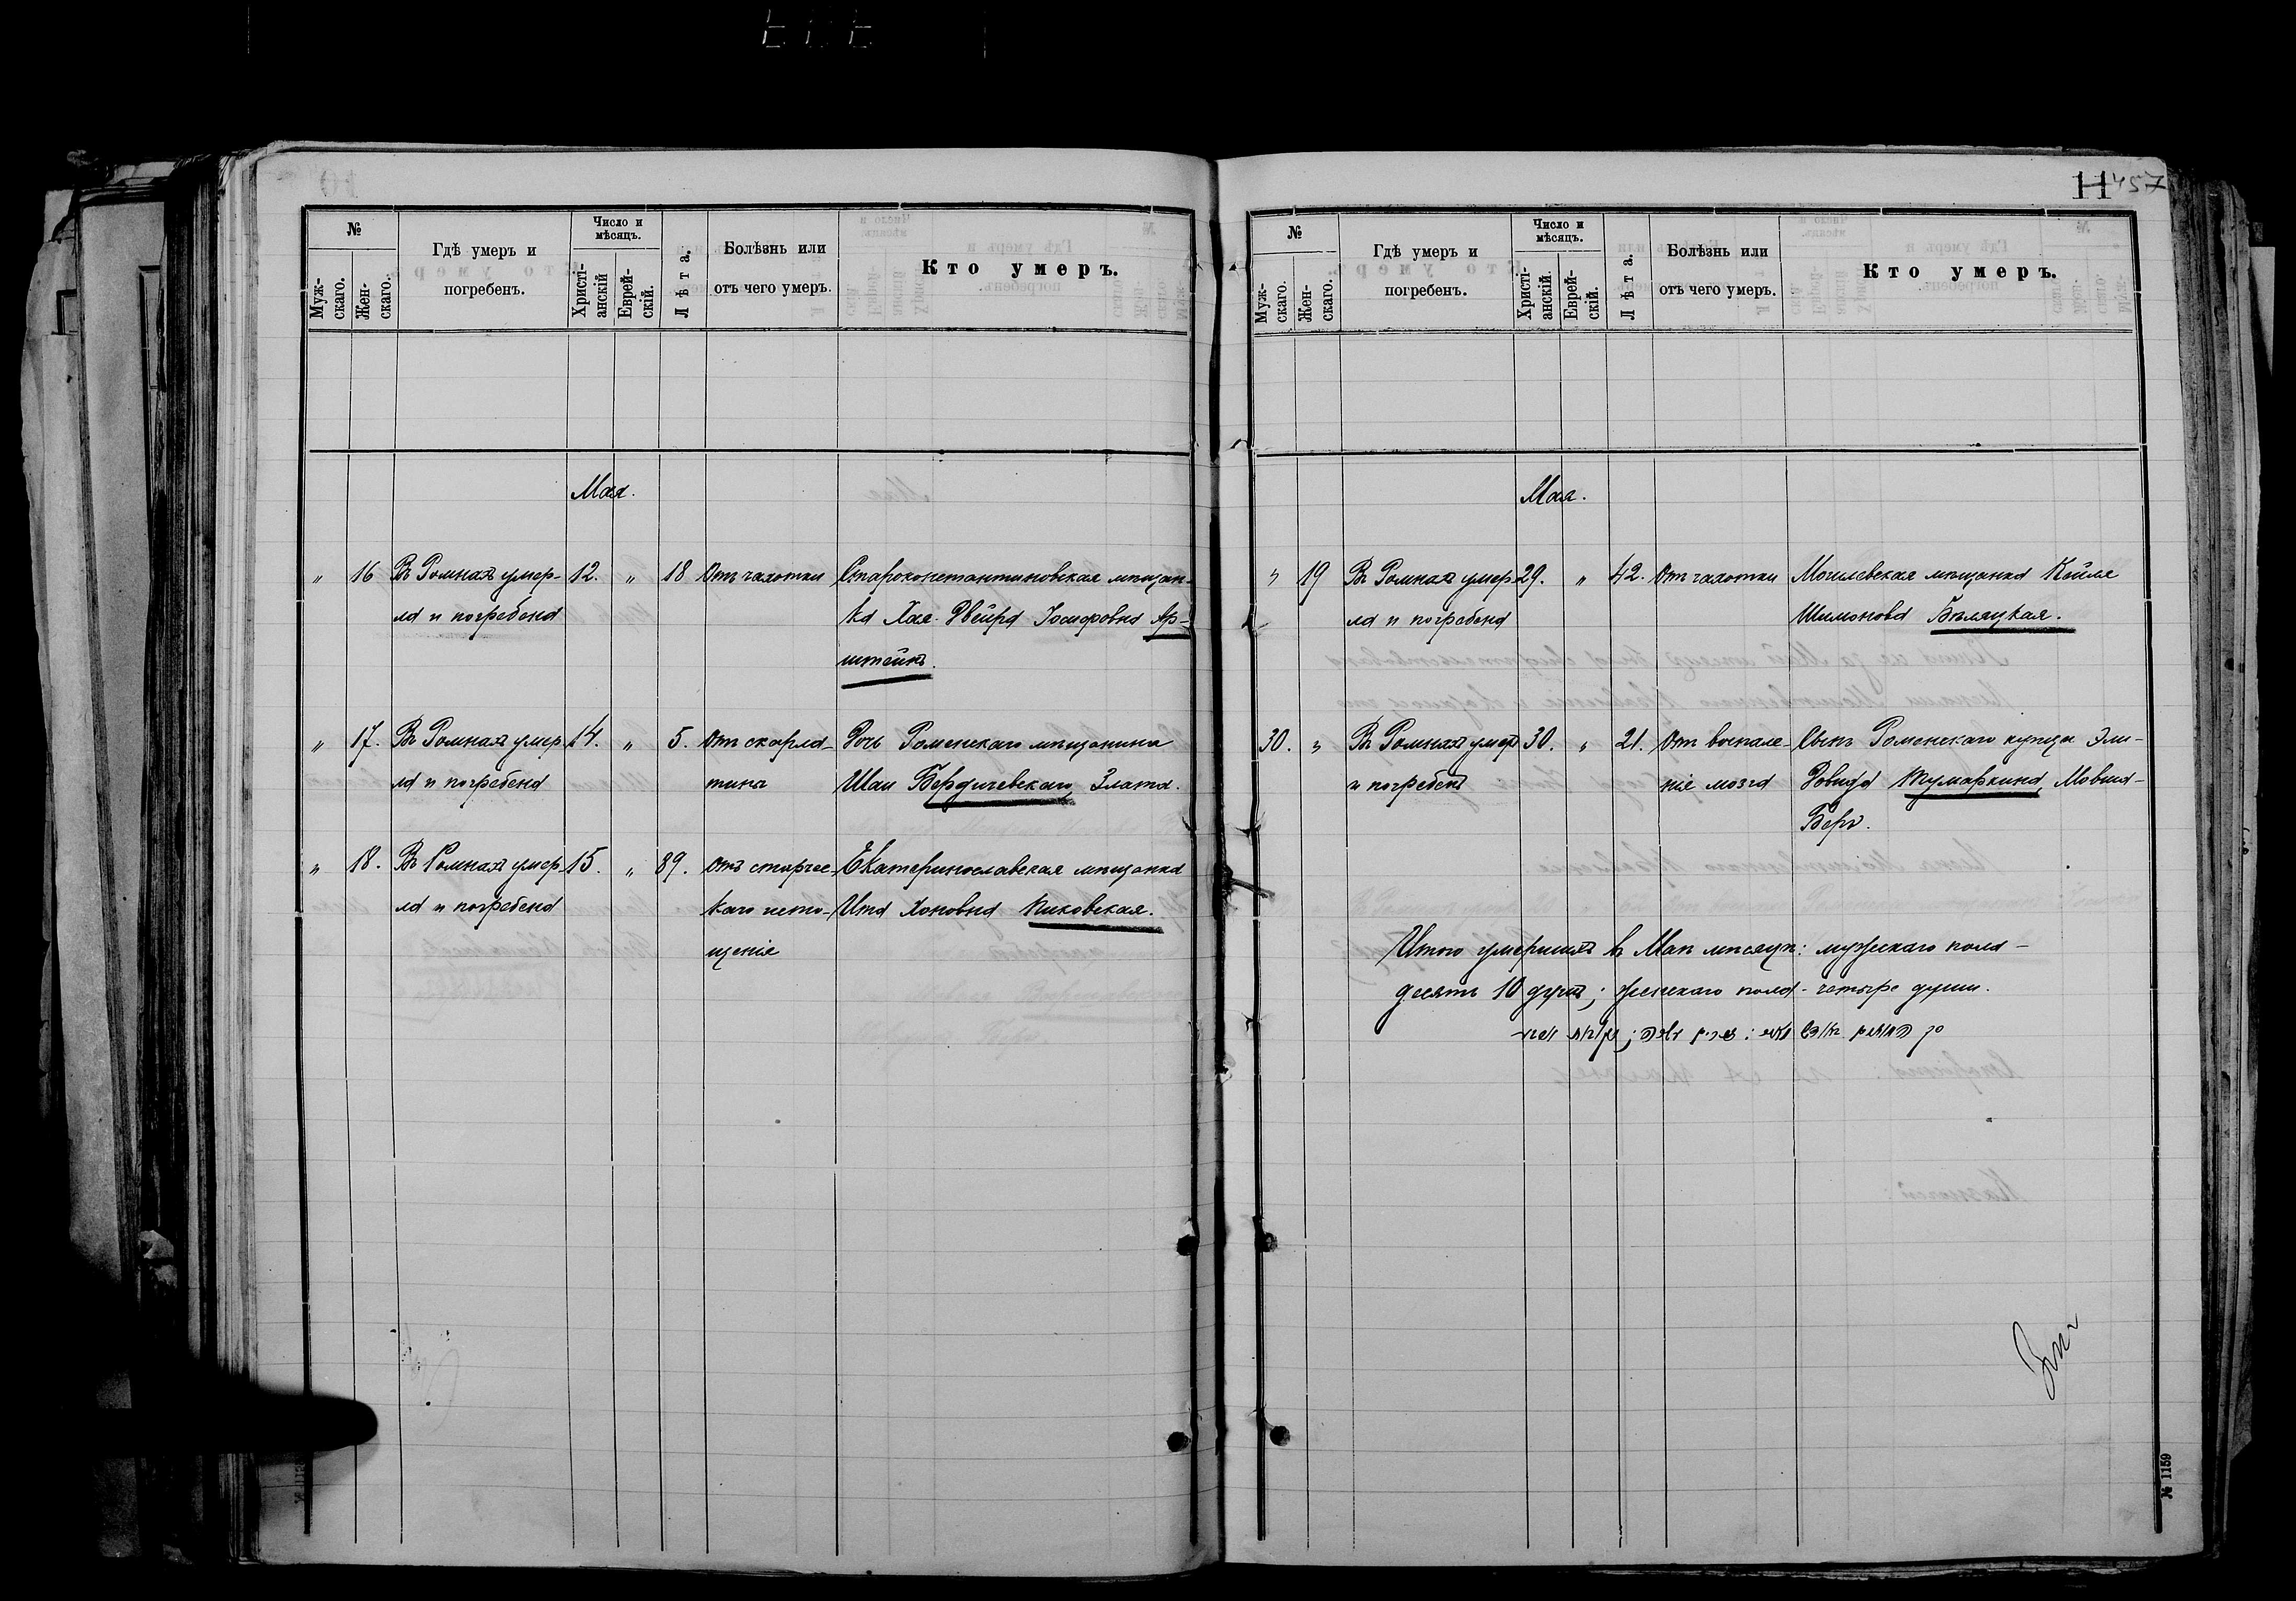 №
Муж-
скаго.
Жен-
скаго.
Гдѣ умеръ и
погребенъ.
Число и
мѣсяцъ.
Христі-
анскій
Еврей-
скій.
Лѣта.
Болѣзнь или
отъ чего умеръ.
Кто умеръ.
Мая.
" 16 Въ Ромнахъ умер- 12. " 18 Отъ чахотки Староконстантиновская мѣщан-
ла и погребена ка Хая-Двейра Іосифовна Ар-
штейнъ.
" 17. Въ Ромнахъ умер- 14. " 5. Отъ скарла- Дочь Роменскаго мѣщанина
ла и погребена тины Шаи Бердичевскаго, Злата.
" 18. Въ Ромнахъ умер- 15. " 89. Отъ старчес- Екатеринославская мѣщанка
ла и погребена каго исто- Ита Хоновна Пиковская.
щенія
11 457
№
Муж-
скаго.
Жен-
скаго.
Гдѣ умеръ и
погребенъ.
Число и
мѣсяцъ.
Христі-
анскій.
Еврей-
скій.
Лѣта.
Болѣзнь или
отъ чего умеръ.
Кто умеръ.
Мая.
" 19 Въ Ромнахъ умер- 29. " 42. Отъ чахотки Могилевская мѣщанка Кейля
ла и погребена Шимонова Бѣляцкая.
30. " Въ Ромнахъ умеръ 30. " 21. Отъ воспале- Сынъ Роменскаго купца Эли-
и погребенъ нія мозга Довида Тумаркина, Мовша-
Беръ.
Итого умершихъ въ Маѣ мѣсяцѣ: мужескаго пола -
десять 10 душъ; женскаго пола - четыре души.
№ 1159